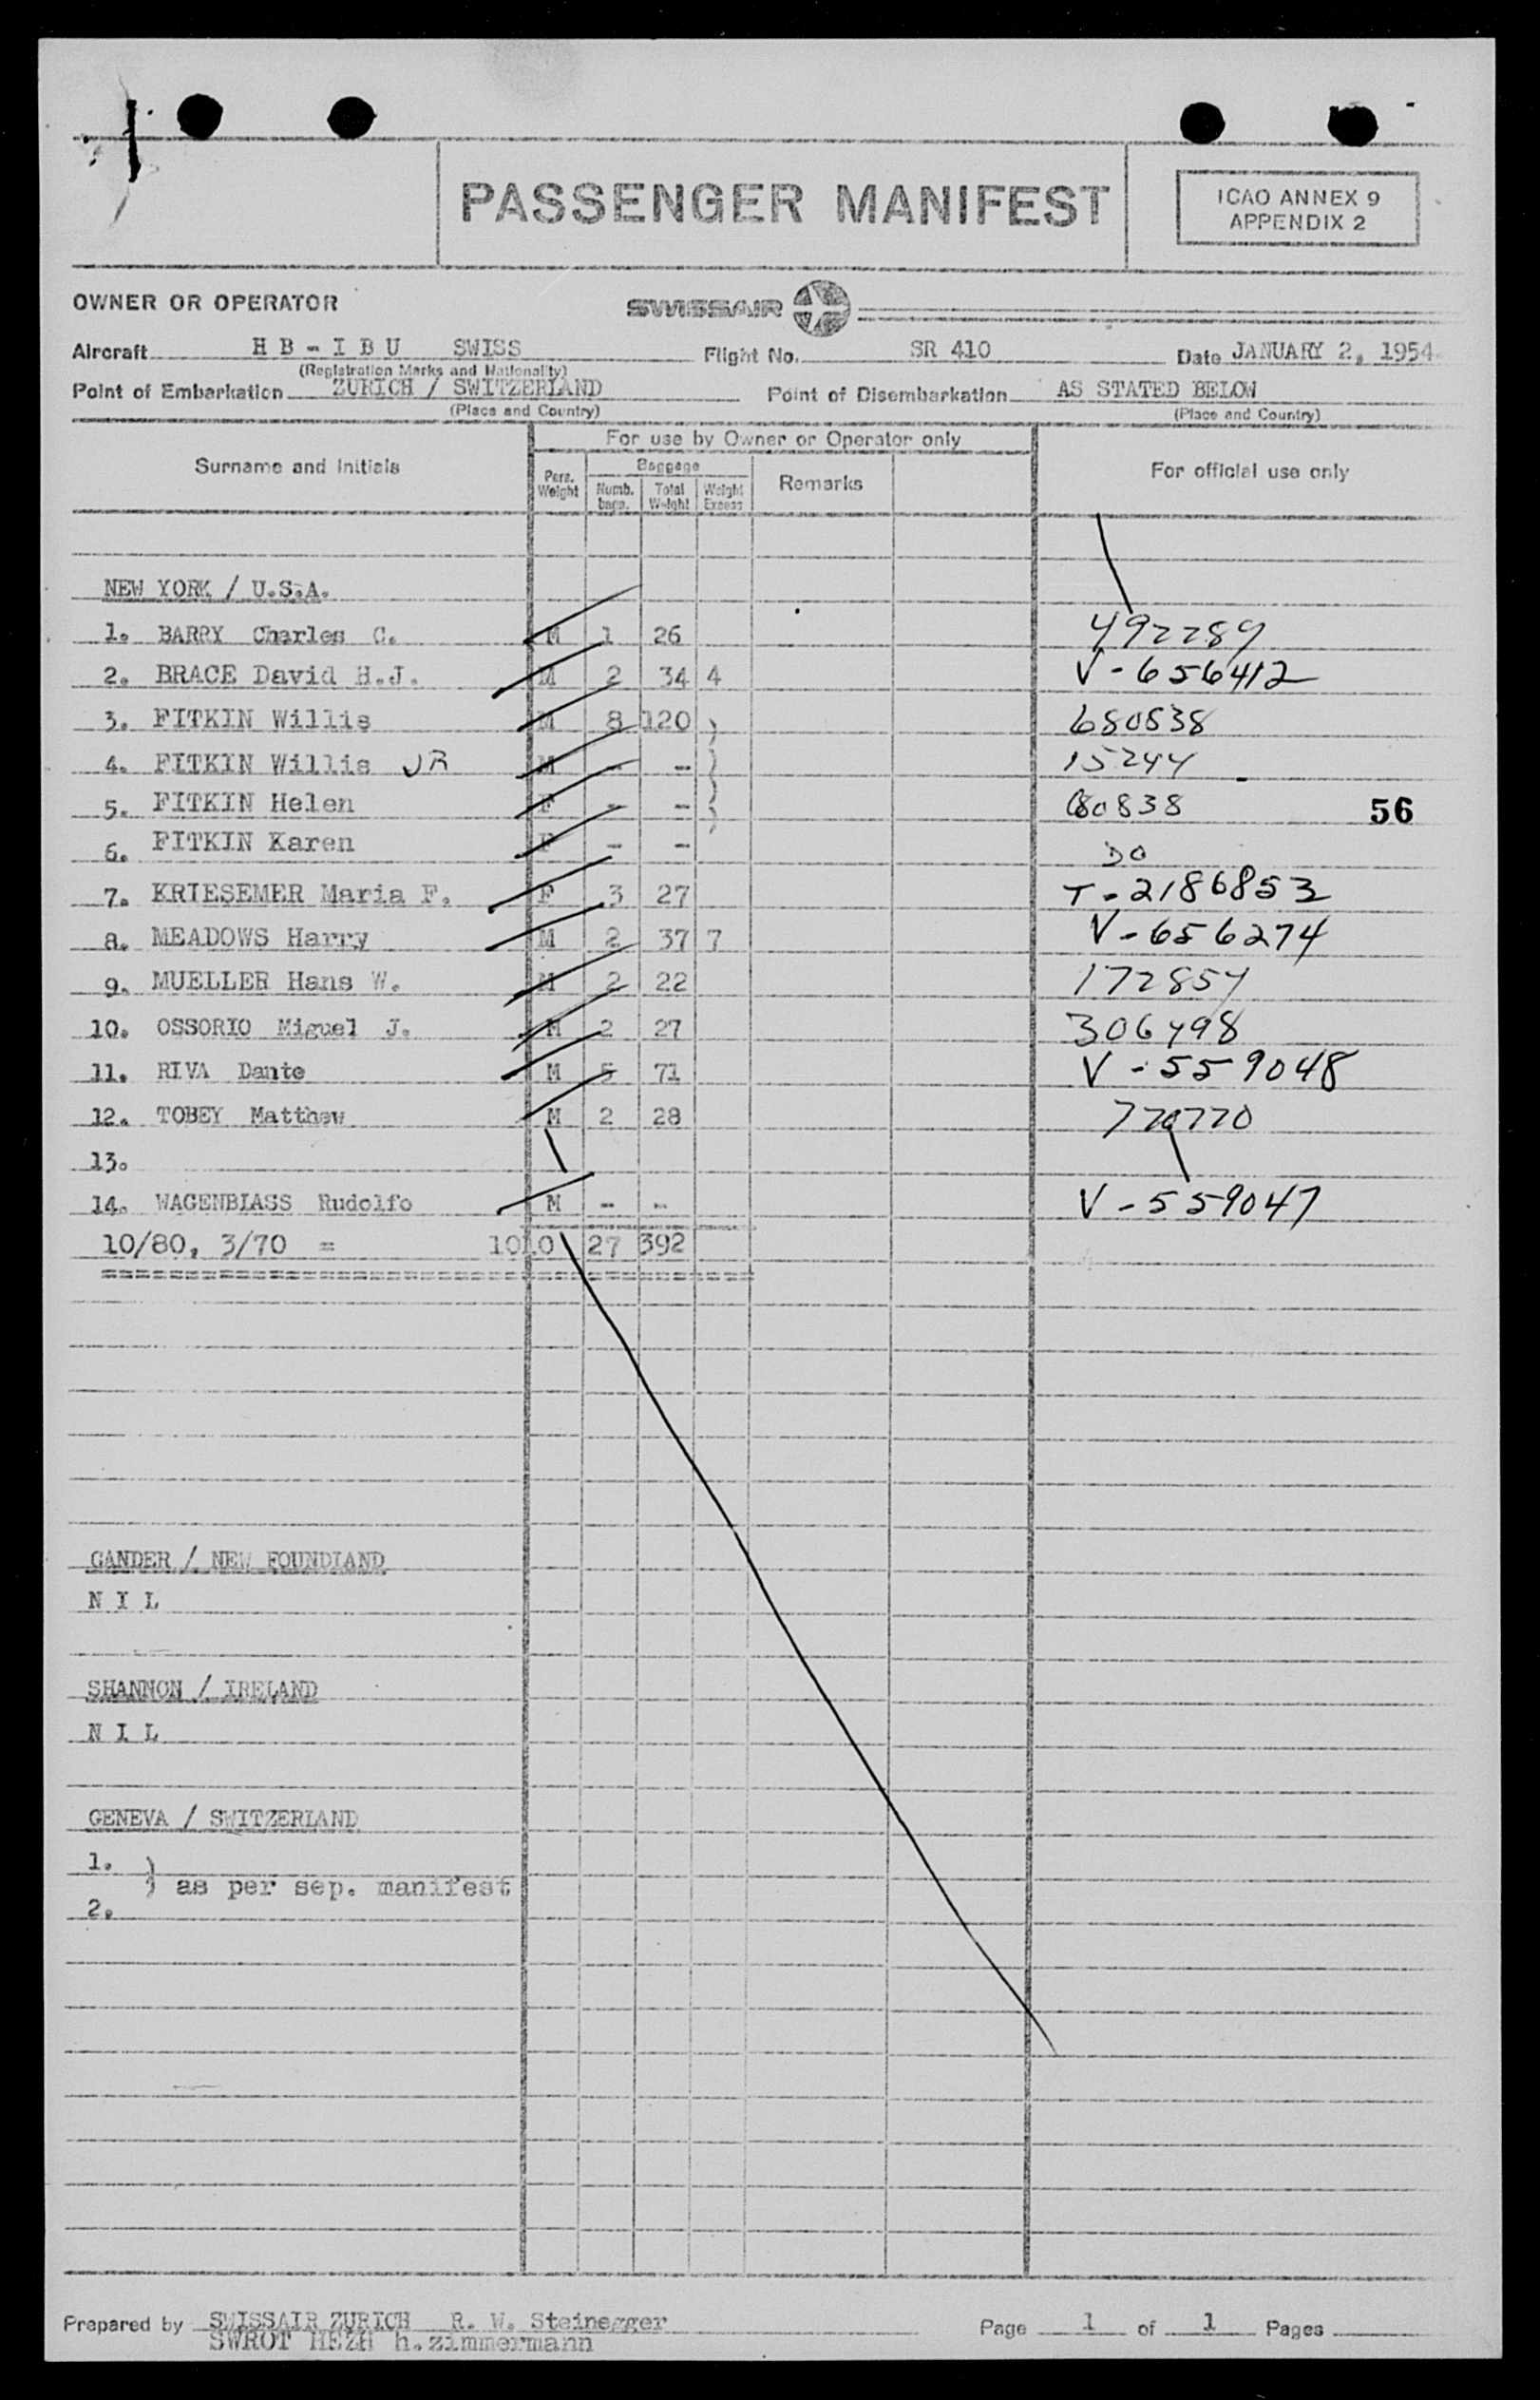 PASSENGER MANIFEST
ICAO ANNEX 9
APPENDIX 2
OWNER OR OPERATOR SWISSAIR
Aircraft HB-IBU SWISS Flight No. SR 410 Date JANUARY 2, 1954
(Registration Marks and Nationality)
Point of Embarkation ZURICH / SWITZERLAND Point of Disembarkation AS STATED BELOW
(Place and Country) (Place and Country)
For use by Owner or Operator only
Surname and Initials Pers. Weight Baggage Numb. bags. Total Weight Weight Excess Remarks For official use only
NEW YORK / U.S.A.
1. BARRY Charles C. M 1 26 492289
2. BRACE David H.J. M 2 34 4 V-656412
3. FITKIN Willis M 8 120 ) 680838
4. FITKIN Willis JR M - - ) 15244
5. FITKIN Helen F - - ) 680838 56
6. FITKIN Karen F - - ) DO
7. KRIESEMER Maria F. F 3 27 T-2186853
8. MEADOWS Harry M 2 37 7 V-656274
9. MUELLER Hans W. M 2 22 172857
10. OSSORIO Miguel J. M 2 27 306498
11. RIVA Dante M 5 71 V-559048
12. TOBEY Matthew M 2 28 770770
13.
14. WAGENBLASS Rudolfo M - - V-559047
10/80, 3/70 = 1010 27 392
GANDER / NEW FOUNDLAND
N I L
SHANNON / IRELAND
N I L
GENEVA / SWITZERLAND
1. )
) as per sep. manifest
2.
Prepared by SWISSAIR ZURICH R. W. Steinegger Page 1 of 1 Pages
SWROT HEZH h.zimmermann